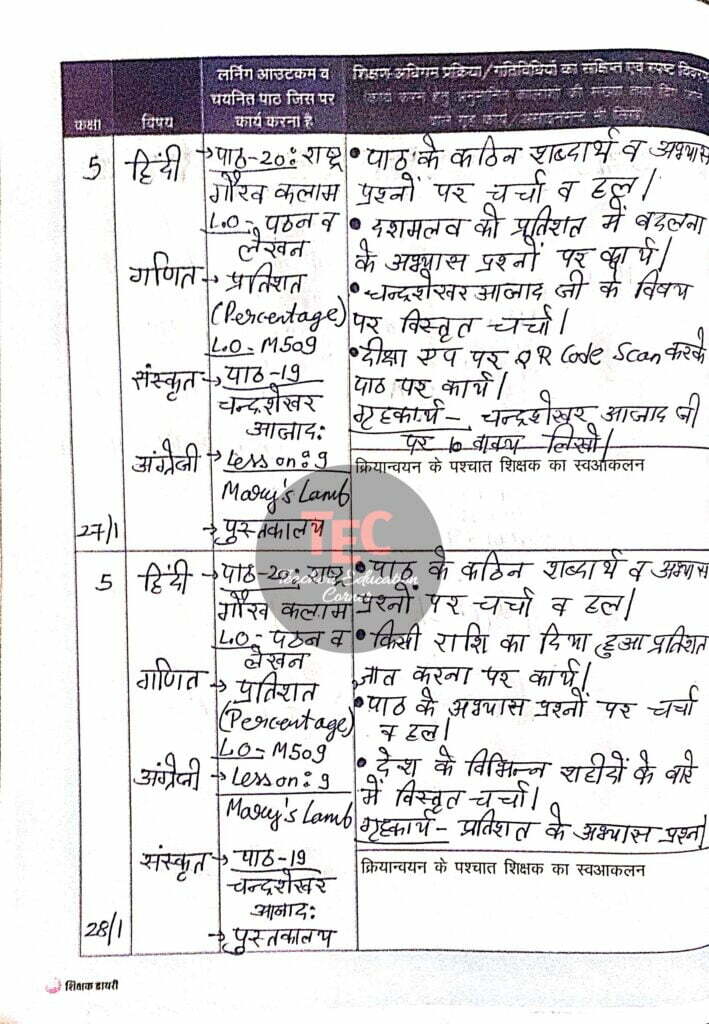 कक्षा
विषय
लर्निंग आउटकम व
चयनित पाठ जिस पर
कार्य करना है
शिक्षण अधिगम प्रक्रिया/गतिविधियों का संक्षिप्त एवं स्पष्ट विवरण
5
हिंदी
→पाठ-20: राष्ट्र
गौरव कलाम
L.O- पठन व
लेखन
गणित
→ प्रतिशत
(Percentage)
L.O- M509
संस्कृत
→ पाठ-19
चन्द्रशेखर
आजाद:
अंग्रेजी
→Lesson:9
Mary's Lamb
→ पुस्तकालय
27/1
• पाठ के कठिन शब्दार्थ व अभ्यास
प्रश्नों पर चर्चा व हल।
• दशमलव को प्रतिशत में बदलना
के अभ्यास प्रश्नों पर कार्य।
• चन्द्रशेखर आजाद जी के विषय
पर विस्तृत चर्चा।
• दीक्षा एप पर QR Code Scan करके
पाठ पर कार्य।
गृहकार्य - चन्द्रशेखर आजाद जी
पर 10 वाक्य लिखो।
क्रियान्वयन के पश्चात शिक्षक का स्वआकलन
TEC
Teachers Education
Corner
5
हिंदी
→पाठ-20: राष्ट्र
गौरव कलाम
L.O- पठन व
लेखन
गणित
→ प्रतिशत
(Percentage)
L.O- M509
अंग्रेजी
→ Lesson:9
Mary's Lamb
संस्कृत
→ पाठ-19
चन्द्रशेखर
आजाद:
→ पुस्तकालय
28/1
• पाठ के कठिन शब्दार्थ व अभ्यास
प्रश्नों पर चर्चा व हल।
• किसी राशि का दिया हुआ प्रतिशत
ज्ञात करना पर कार्य।
• पाठ के अभ्यास प्रश्नों पर चर्चा
व हल।
• देश के विभिन्न शहीदों के बारे
में विस्तृत चर्चा।
गृहकार्य - प्रतिशत के अभ्यास प्रश्न।
क्रियान्वयन के पश्चात शिक्षक का स्वआकलन
शिक्षक डायरी